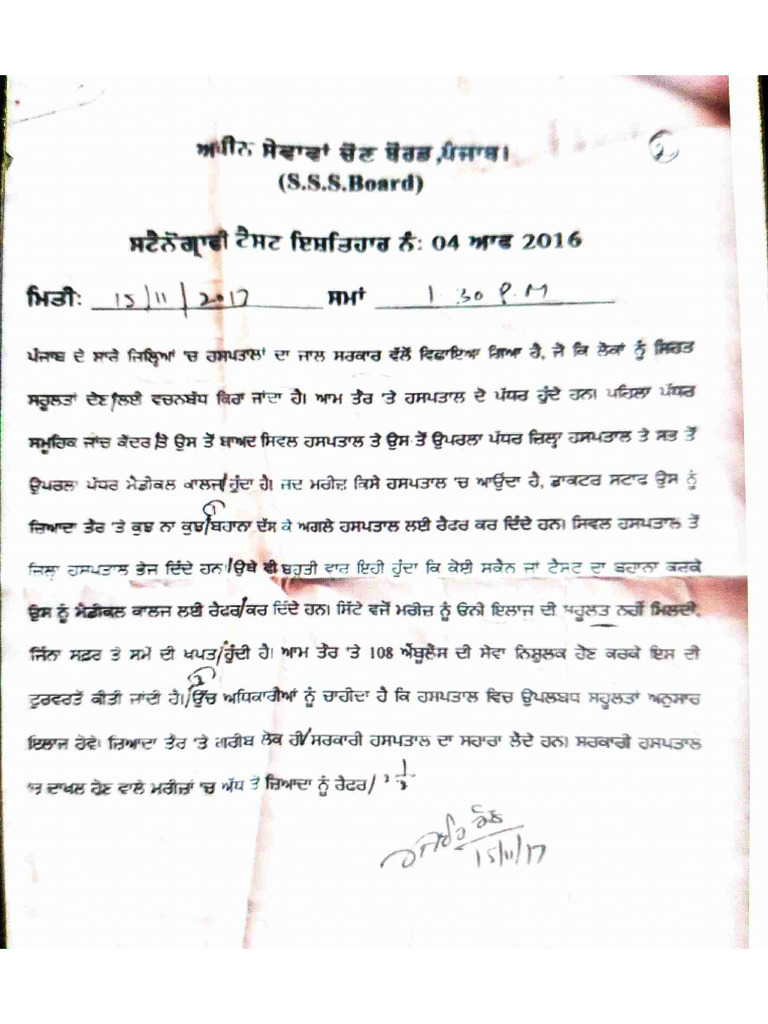 ਅਧੀਨ ਸੇਵਾਵਾਂ ਚੋਣ ਬੋਰਡ ,ਪੰਜਾਬ।
2
(S.S.S.Board)
ਸਟੈਨੋਗ੍ਰਾਫੀ ਟੈਸਟ ਇਸ਼ਤਿਹਾਰ ਨੰ: 04 ਆਫ 2016
ਮਿਤੀ: 15/11/2017 ਸਮਾਂ 1.30 P.M
ਪੰਜਾਬ ਦੇ ਸਾਰੇ ਜ਼ਿਲ੍ਹਿਆਂ 'ਚ ਹਸਪਤਾਲਾਂ ਦਾ ਜਾਲ ਸਰਕਾਰ ਵੱਲੋਂ ਵਿਛਾਇਆ ਗਿਆ ਹੈ, ਜੋ ਕਿ ਲੋਕਾਂ ਨੂੰ ਸਿਹਤ
ਸਹੂਲਤਾਂ ਦੇਣ/ਲਈ ਵਚਨਬੱਧ ਕਿਹਾ ਜਾਂਦਾ ਹੈ। ਆਮ ਤੌਰ 'ਤੇ ਹਸਪਤਾਲ ਦੇ ਪੱਧਰ ਹੁੰਦੇ ਹਨ। ਪਹਿਲਾ ਪੱਧਰ
ਸਮੂਹਿਕ ਜਾਂਚ ਕੇਂਦਰ,ਤੇ ਉਸ ਤੋਂ ਬਾਅਦ ਸਿਵਲ ਹਸਪਤਾਲ ਤੇ ਉਸ ਤੋਂ ਉਪਰਲਾ ਪੱਧਰ ਜ਼ਿਲ੍ਹਾ ਹਸਪਤਾਲ ਤੇ ਸਭ ਤੋਂ
ਉਪਰਲਾ ਪੱਧਰ ਮੈਡੀਕਲ ਕਾਲਜ/ਹੁੰਦਾ ਹੈ। ਜਦ ਮਰੀਜ਼ ਕਿਸੇ ਹਸਪਤਾਲ 'ਚ ਆਉਂਦਾ ਹੈ, ਡਾਕਟਰ ਸਟਾਫ ਉਸ ਨੂੰ
1
ਜ਼ਿਆਦਾ ਤੌਰ 'ਤੇ ਕੁਝ ਨਾ ਕੁਝ/ਬਹਾਨਾ ਦੱਸ ਕੇ ਅਗਲੇ ਹਸਪਤਾਲ ਲਈ ਰੈਫਰ ਕਰ ਦਿੰਦੇ ਹਨ। ਸਿਵਲ ਹਸਪਤਾਲ ਤੋਂ
ਜ਼ਿਲ੍ਹਾ ਹਸਪਤਾਲ ਭੇਜ ਦਿੰਦੇ ਹਨ/ਉਥੇ ਵੀ ਬਹੁਤੀ ਵਾਰ ਇਹੀ ਹੁੰਦਾ ਕਿ ਕੋਈ ਸਕੈਨ ਜਾਂ ਟੈਸਟ ਦਾ ਬਹਾਨਾ ਕਰਕੇ
ਉਸ ਨੂੰ ਮੈਡੀਕਲ ਕਾਲਜ ਲਈ ਰੈਫਰ/ਕਰ ਦਿੰਦੇ ਹਨ। ਸਿੱਟੇ ਵਜੋਂ ਮਰੀਜ਼ ਨੂੰ ਓਨੀ ਇਲਾਜ ਦੀ ਸਹੂਲਤ ਨਹੀਂ ਮਿਲਦੀ,
ਜਿੰਨਾ ਸਫ਼ਰ ਤੇ ਸਮੇਂ ਦੀ ਖਪਤ/ਹੁੰਦੀ ਹੈ। ਆਮ ਤੌਰ 'ਤੇ 108 ਐਂਬੂਲੈਂਸ ਦੀ ਸੇਵਾ ਨਿਸ਼ੁਲਕ ਹੋਣ ਕਰਕੇ ਇਸ ਦੀ
2
ਦੁਰਵਰਤੋਂ ਕੀਤੀ ਜਾਂਦੀ ਹੈ।/ਉੱਚ ਅਧਿਕਾਰੀਆਂ ਨੂੰ ਚਾਹੀਦਾ ਹੈ ਕਿ ਹਸਪਤਾਲ ਵਿਚ ਉਪਲਬਧ ਸਹੂਲਤਾਂ ਅਨੁਸਾਰ
ਇਲਾਜ ਹੋਵੇ। ਜ਼ਿਆਦਾ ਤੌਰ 'ਤੇ ਗਰੀਬ ਲੋਕ ਹੀ/ਸਰਕਾਰੀ ਹਸਪਤਾਲ ਦਾ ਸਹਾਰਾ ਲੈਂਦੇ ਹਨ। ਸਰਕਾਰੀ ਹਸਪਤਾਲ
'ਚ ਦਾਖਲ ਹੋਣ ਵਾਲੇ ਮਰੀਜ਼ਾਂ 'ਚ ਅੱਧ ਤੋਂ ਜ਼ਿਆਦਾ ਨੂੰ ਰੈਫਰ/
15/11/17